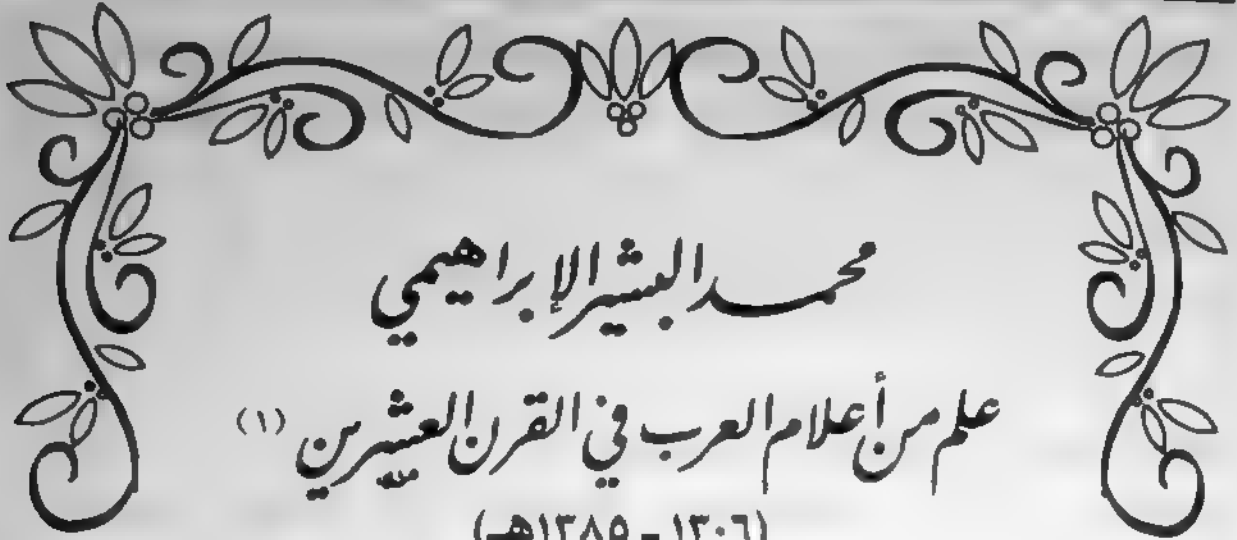 محمد البشير الإبراهيمي
علم من أعلام العرب في القرن العشرين (١)
(١٣٠٦ - ١٣٨٥هـ)